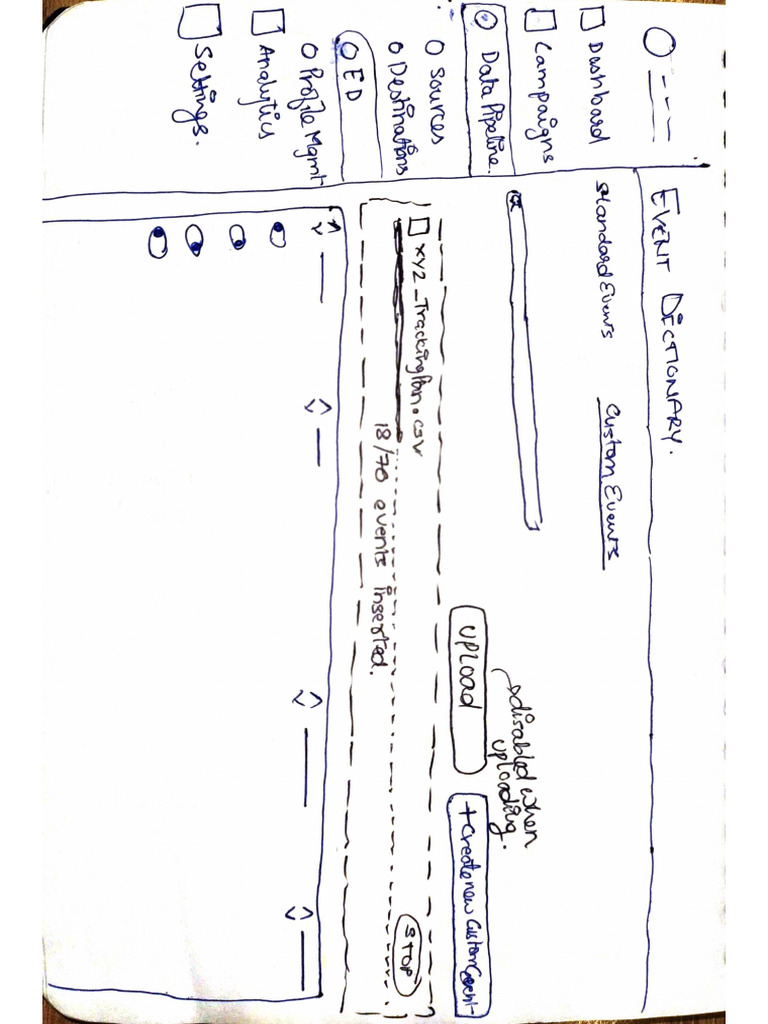 Dashboard
Campaigns
Data Pipeline.
Sources
Destinations
ED
Profile Mgmt
Analytics
Settings.
EVENT DICTIONARY.
Standard Events
Custom Events
disabled when
uploading.
UPLOAD
+ Create new Custom Event
xyz_Trackingplan.csv
STOP
18/70 events inserted.